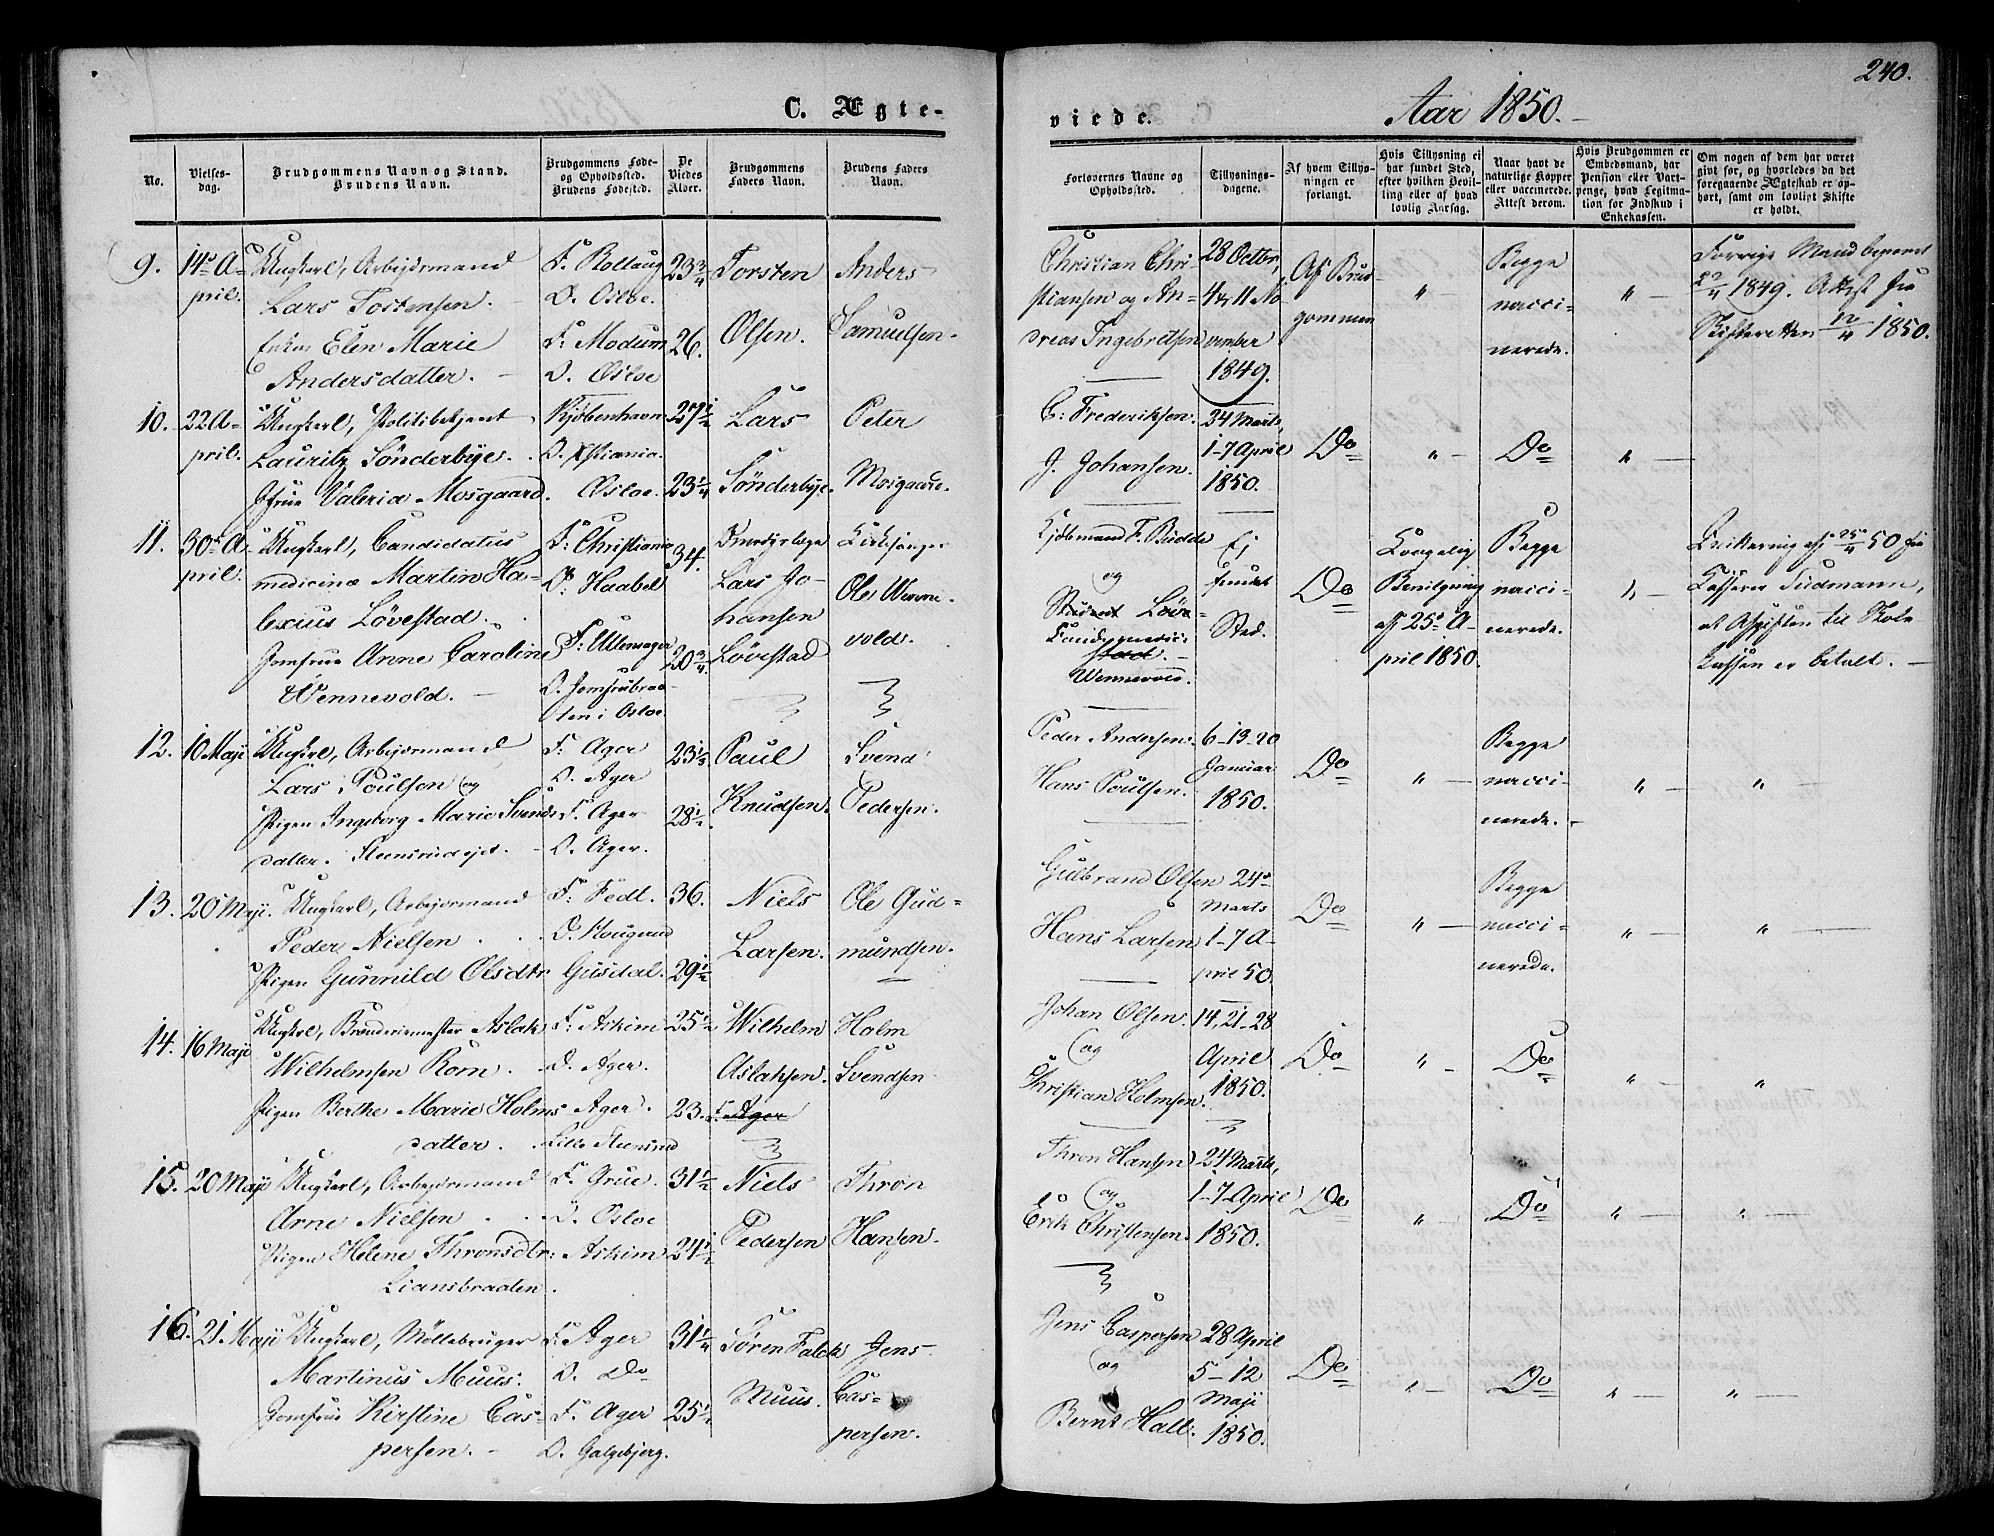 240.
C. Ægte-
viede.
Aar 1850.
No.
Vielses-
dag.
Brudgommens Navn og Stand.
Brudens Navn.
Brudgommens Føde-
og Opholdssted.
Brudens Fødested.
De
Viedes
Alder.
Brudgommens
Faders Navn.
Brudens Faders
Navn.
Forlovernes Navne og
Opholdssted.
Tillysnings-
dagene.
Af hvem Tillys-
ningen er
forlangt.
Hvis Tillysning ei
har fundet Sted,
efter hvilken Bevil-
ling eller af hvad
lovlig Aarsag.
Naar havt de
naturlige Kopper
eller vaccinerede.
Attest derom.
Hvis Brudgommen er
Embedsmand, har
Pension eller Vart-
penge, hvad Legitima-
tion for Indskud i
Enkekassen.
Om nogen af dem har været
givt før, og hvorledes da det
foregaaende Ægteskab er op-
hørt, samt om lovligt Skifte
er holdt.
9.
14de A-
pril.
Ungkarl, Arbejdsmand
Lars Tostensen.
Enke Elen Marie
Andersdatter.
F. Rollaug
O. Osloe.
F: Modum
O. Osloe
23 3/4
26.
Torsten
Olsen.
Anders
Samuelsen.
Christian Chri-
stiansen og An-
dreas Ingebretsen
28 Octbr,
4 & 11 No
vember
1849.
Af Brud
gommen
"
Begge
vacci-
nerede.
"
Forrige Mand begravet
22/4 1849. Attest fra
Skifteretten 12/4 1850.
10.
22 A-
pril.
Ungkarl, Politibetjent
Lauritz Sönderbye.
Jfrue Valeria Mosgaard.
Kjöbenhavn
O. Xstiania.
Osloe.
27 1/2
23 1/4
Lars
Sönderbye.
Peter
Mosgaard.
C: Frederiksen.
J. Johansen.
24 Marts,
1-7 April
1850.
Do
"
Do
"
11.
30te A-
pril.
Ungkarl, Candidatus
medicinæ Martin Ha-
lexius Lövestad.
Jomfrue Anne Caroline
Wennevold.
F: Christiania
O: Haabel
F: Ullensager
O. Jomfrubraa-
ten i Osloe.
34.
20 3/4
Lars Jo-
hansen
Lövestad
Kirkesanger
Ole Wenne-
vold.
Kjöbmand F. Budde
og
Student Löve-
stad.
Wennevold.
Ej
fundet
Sted.
Do
Kongelig
Bevilgning
af 25de A-
pril 1850.
Begge
vacci-
nerede.
"
Kasserer Tudmann,
at Afgiften til Skole
kassen er betalt.
12.
10 Maji
Ungkarl, Arbejdsmand
Lars Poulsen og
Pigen Ingeborg Marie Svends
datter. Steensrudejet.
F: Ager
O. Ager
F. Ager
O. Ager.
23 1/2
28 1/2
Paul
Knudsen.
Svend
Pedersen.
Peder Andersen.
Hans Poulsen.
6-13-20
Januar
1850.
Do
"
Begge
vacci-
nerede.
"
"
13.
20 Maji.
Ungkarl, Arbejdsmand
Peder Nielsen
Pigen Gunnild Olsdtr
F: Fedt.
O. Hougerud
Gusdal.
36.
29 1/2
Niels
Larsen.
Ole Gud-
mundsen.
Gulbrand Olsen
Hans Larsen
24de
Marts
1-7 A-
pril 50.
Do
"
Begge
vacci-
nerede.
"
"
14.
16 Maji
Ungkarl, Brænderiemester Aslak
Wilhelmsen Korn.
Pigen Berthe Marie Holms
datter.
F: Askim
O. Ager.
Ager.
Lille Steensrud
25 1/2
23.
Wilhelm
Aslaksen.
F. Ager
Holm
Svendsen
Johan Olsen.
og
Christian Holmsen.
14, 21-28
April
1850.
Do
"
Do
"
"
15.
20 Maji
Ungkarl, Arbejdsmand
Arne Nielsen
Pigen Helene Thronsdtr:
Liansbraaden.
F. Grue.
O. Osloe
Askim
31 1/2
24 1/2
Niels
Pedersen
Thron
Hansen.
Thron Hansen
og
Erik Christensen.
24 Marts,
1-7-April
1850.
Do
"
Do
"
"
16.
21. Maji
Ungkarl, Möllebruger
Martinus Muus.
Jomfrue Kirstine Cas-
persen.
F: Ager
O. Do
F. Ager
O. Galgebjerg.
31 1/4
25 1/2
Sören Falck
Muus.
Jens
Cas-
persen.
Jens Caspersen
og
Bernt Hall.
28 April
5-12
Maji
1850.
Do
"
Do
"
"